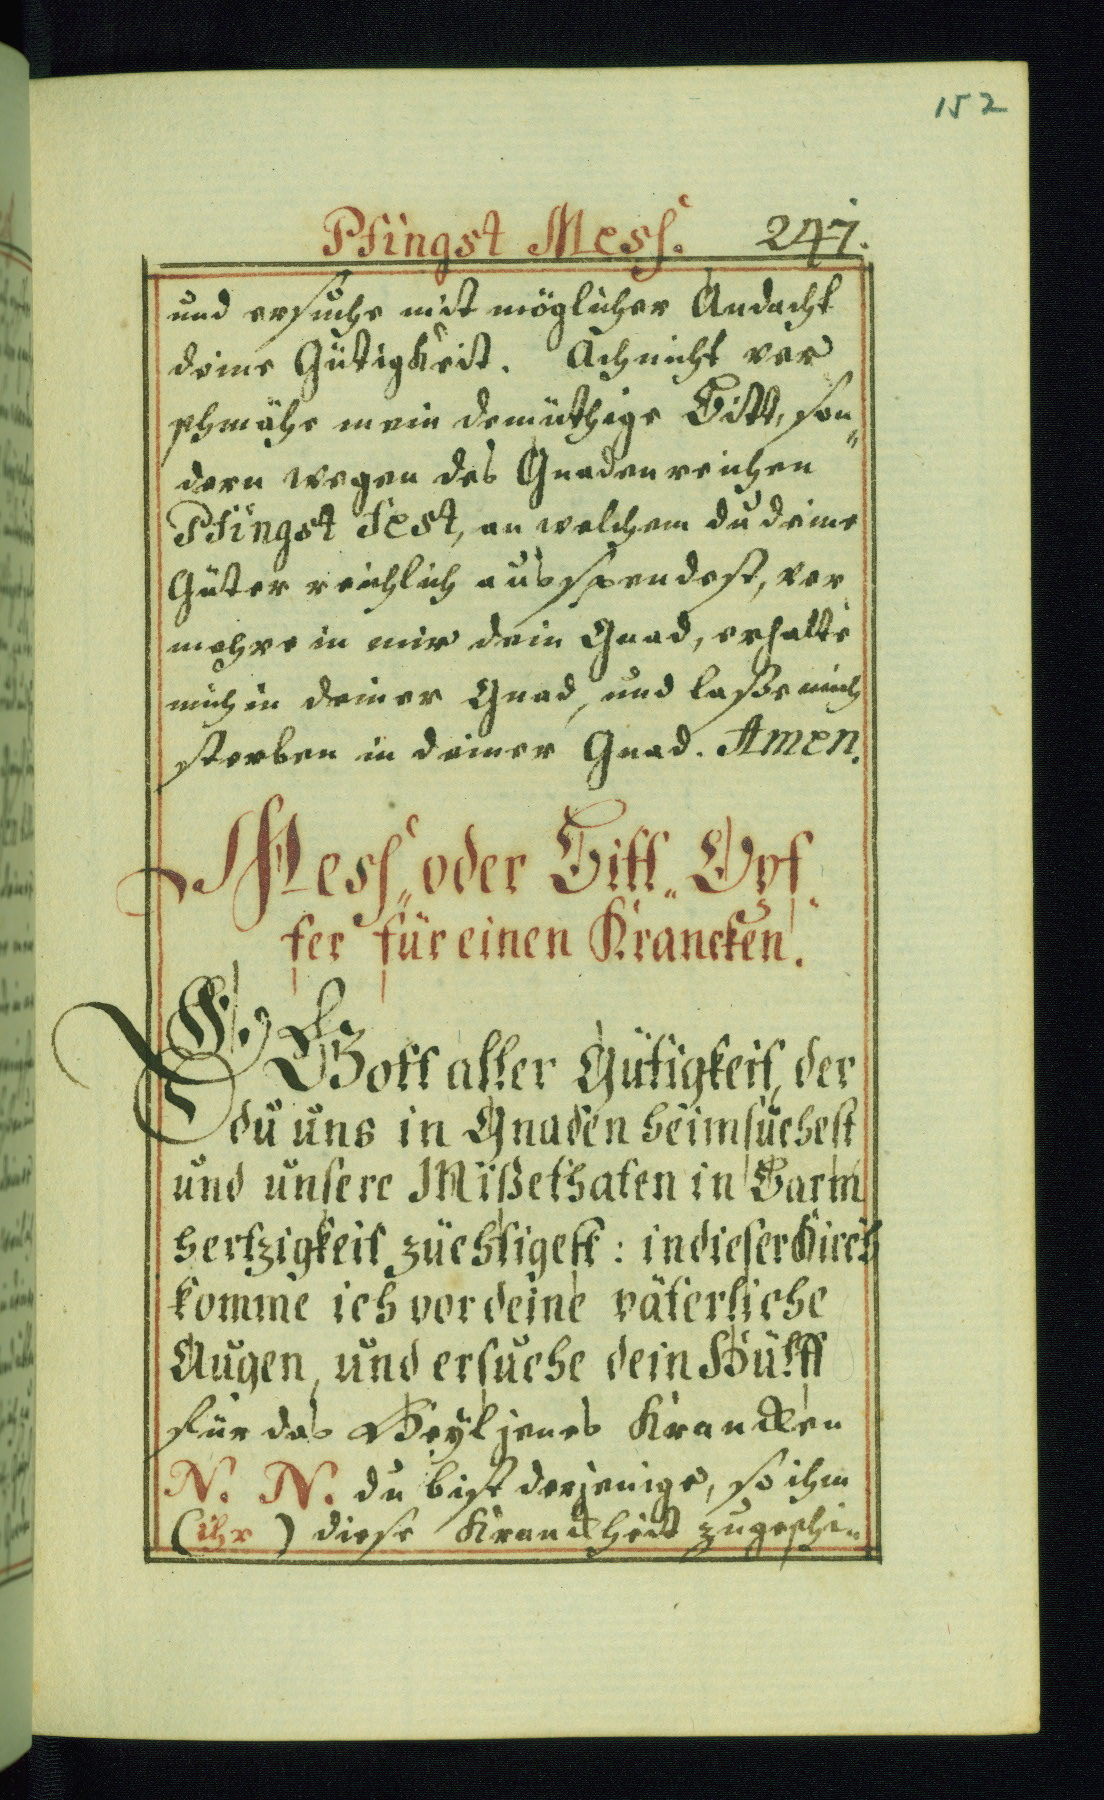 152
Pfingst Mess. 247.
und ersuche mit möglicher Andacht
deine Gütigkeit. Ach nicht ver
schmähe mein demüthige Bitt, son„
dern wegen des Gnadenreichen
Pfingst Fest, an welchem du deine
Güter reichlich ausspendest, ver
mehre in mir dein Gnad, erhalte
mich in deiner Gnad, und lasse mich
sterben in deiner Gnad. Amen.
Mess„ oder Bitt„ Opf„
fer für einen Krancken.
O Gott aller Gütigkeit, der
du uns in Gnaden heimsuchest
und unsere Mißethaten in Barm
hertzigkeit züchtigest: in dieser Kirch
komme ich vor deine väterliche
Augen, und ersuche dein Hülff
für das Heyl jenes Krancken
N. N. du bist derjenige, so ihm
(ihr) diese Kranckheit zugeschi„